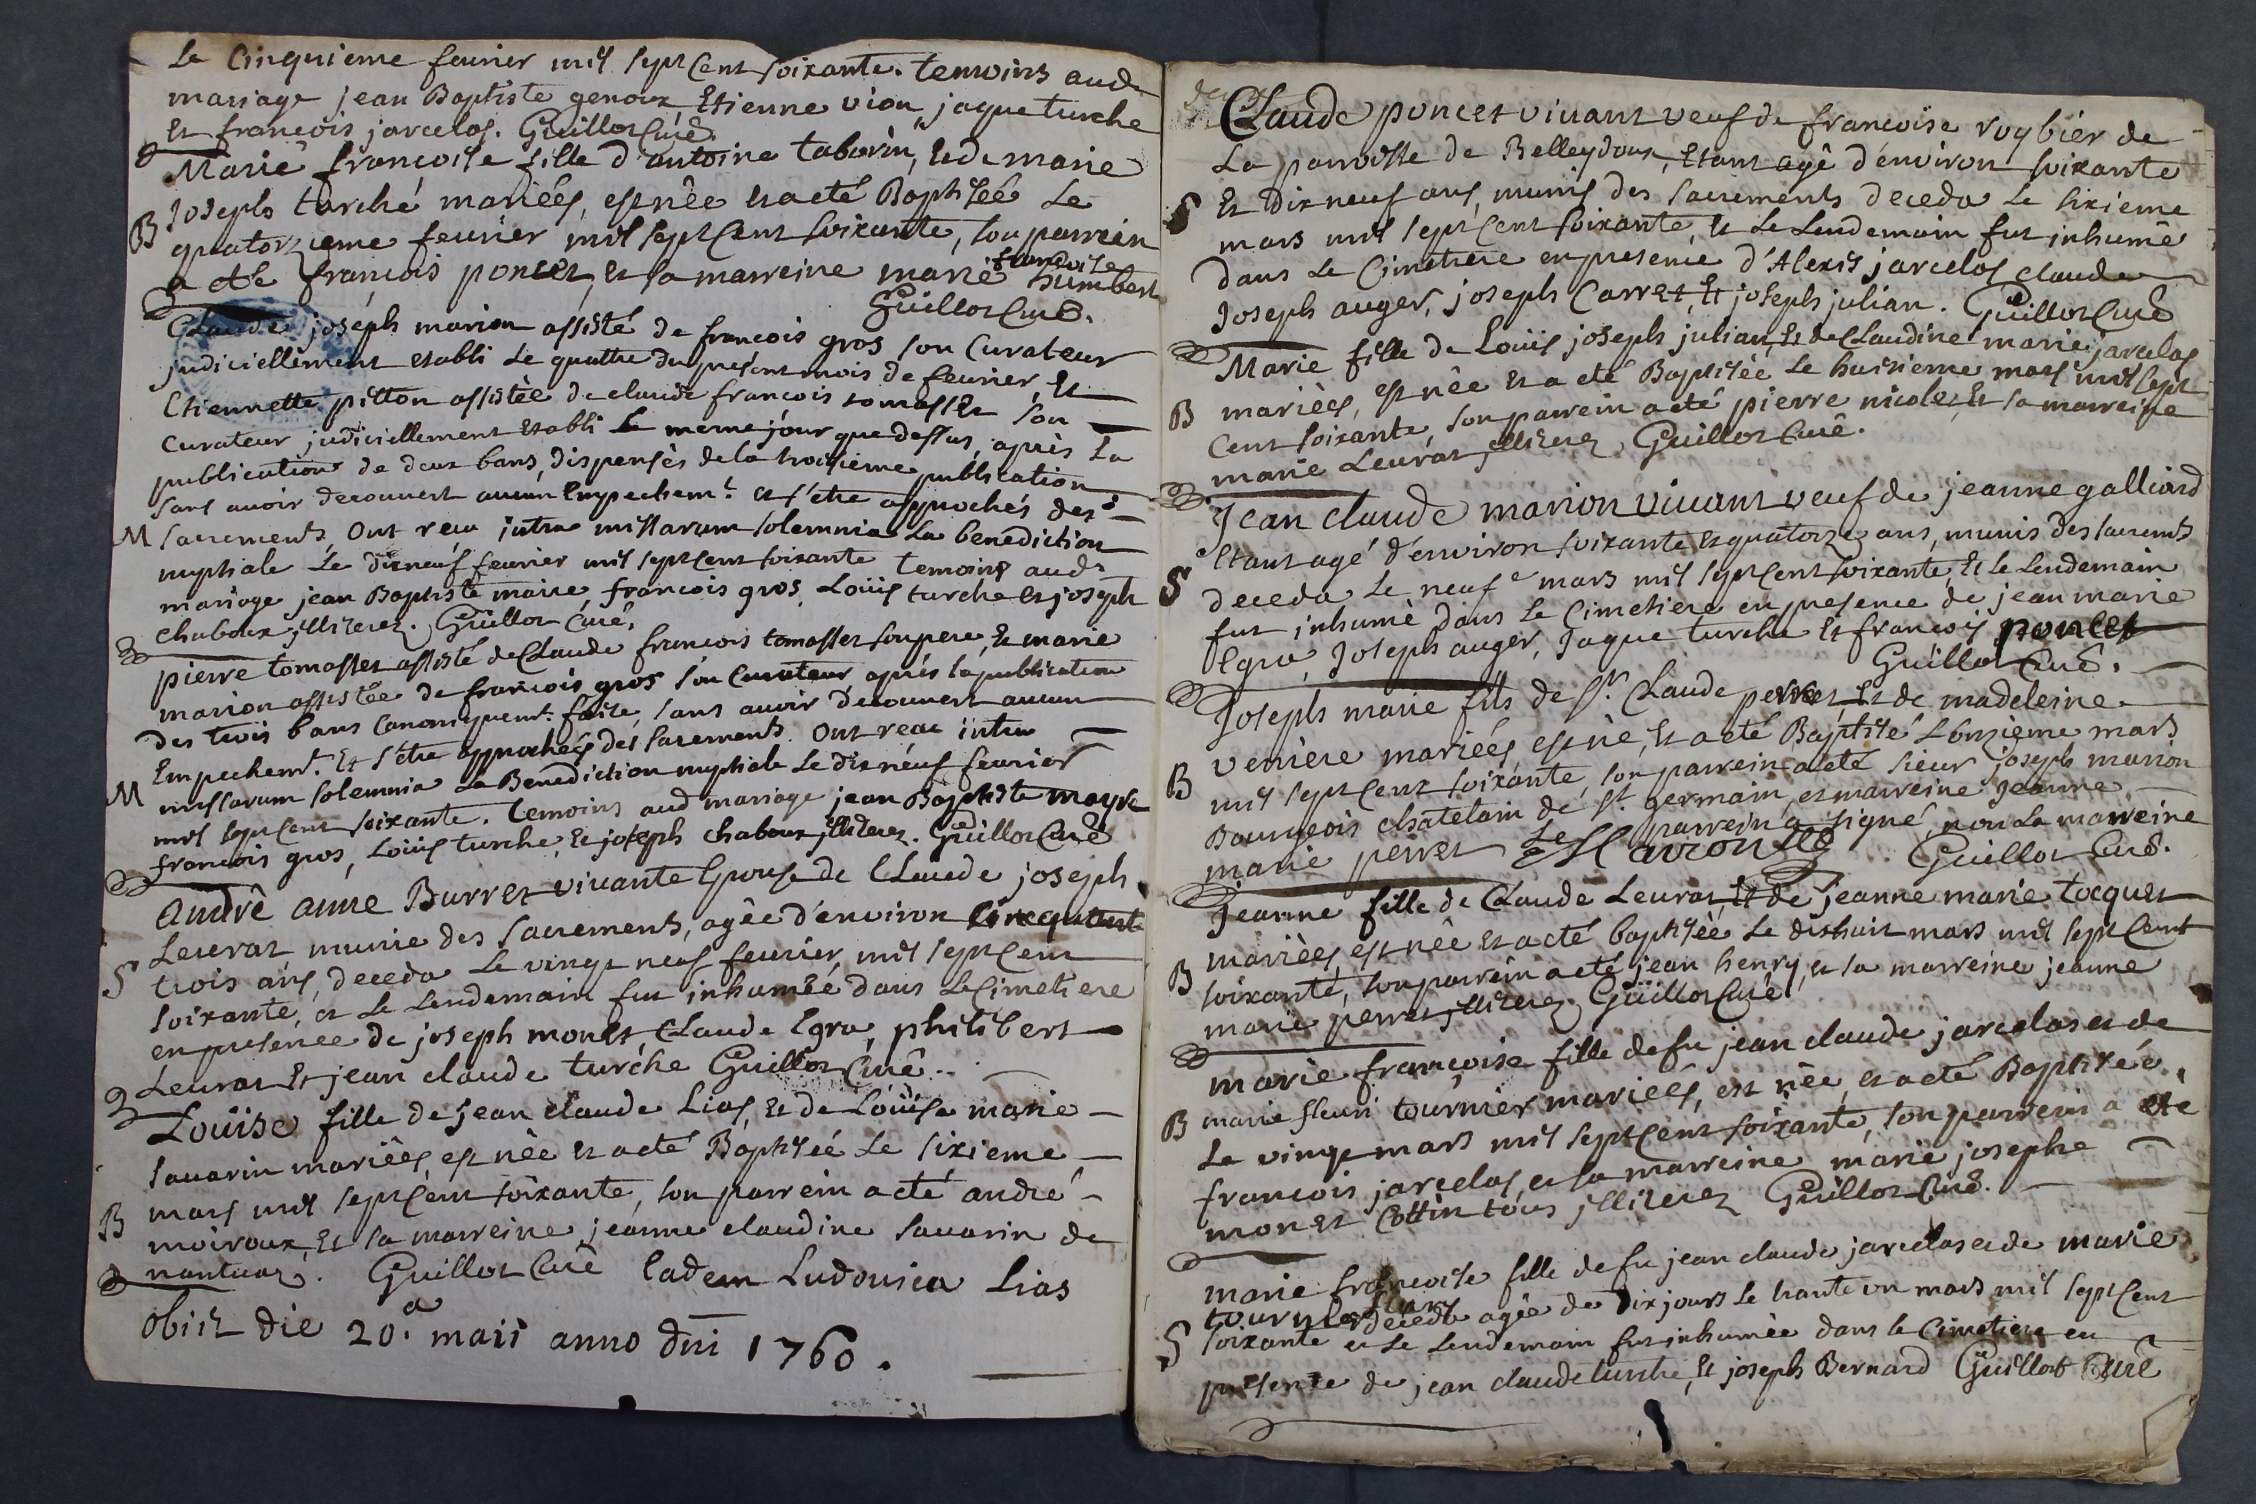 Le Cinquieme feurier mil sept Cent soixante. temoins aud
mariage jean Baptiste genoux, Etienne vion, jaque turche
Et francois jarcelos. Guillot Curé
Marie francoise fille d'antoine taborin, et de marie
Joseph turché mariées, est née et a eté Baptisée Le
B quatorzieme feurier mil sept Cent soixante, son parrein
a eté françois poncet, et sa marreine marie francoise humbert
Guillot Curé.
Claude joseph marion assisté de francois gros son Curateur
judiciellement etabli Le quattre du présent mois de feurier, Et
Etiennette pitton assistée de claude francois tomasset son
Curateur judiciellement Etabli Le meme jour que dessus, après La
publication de deux bans, dispensés de la troisieme publication
sans avoir decouvert aucun Empechemt. et s'etre approchés des
M sacrements, Ont recu intra missarum solemnia La benediction
nuptiale Le dixneuf feurier mil sept cent soixante temoins aud
mariage jean Baptiste maire, francois gros, Loüis turche et joseph
Chaboux, jlliterez. Guillot Curé.
pierre tomasset assisté de Claude francois tomasset son pere, Et marie
marion assistée de francois gros son Curateur après la publication
des trois bans Canoniquemt. faite, sans avoir decouvert aucun
Empechemt. Et s'etre approchées des sacrements. Ont recu intra
M missarum solemnia La Benediction nuptiale Le dixneuf feurier
mil sept Cent soixante. temoins aud mariage jean Baptiste mayre
francois gros, Loüis turche, Et joseph chaboux jlliterez. Guillot Curé
André anne Burret vivante Epouse de Claude joseph
Leurat munie des sacrements, agée d'environ Cinquante
S trois ans, deceda Le vingt neuf feurier mil sept Cent
soixante, et Le Lendemain fut inhumée dans Le Cimetiere
en presence de joseph monet, Claude Egra, philibert
Leurat Et jean claude turche Guillot Curé.
Loüise fille de jean claude Lias, Et de Loüise marie
savarin mariées, est née et a eté Baptisée Le sixieme
B mars mil sept Cent soixante, son parrein a eté andré
moiroux, Et sa marreine jeanne claudine savarin de
nantuaz. Guillot Curé Eadem Ludovica Lias
obiit die 20.a maii anno dni 1760.
Claude poncet vivant veuf de francoise roybier de
La parroisse de Belleydoux, Etant agé d'environ soixante
S Et dix neuf ans, munis des sacrements deceda Le sixieme
mars mil sept Cent soixante, Et Le Lendemain fut inhumé
dans Le Cimetiere en presence d'Alexis jarcelos, claude
Joseph auger, joseph Carret, Et joseph julian. Guillot Curé
Marie fille de Loüis joseph julian, Et de Claudine marie jarcelos
B mariées, est née et a eté Baptisée Le huitieme mars mil sept
Cent soixante, son parrein a eté pierre nicolet, Et sa marreine
marie Leurat jlliterez Guillot Curé.
Jean Claude marion vivant veuf de jeanne galliard
Etant agé d'environ soixante et quatorze ans, munis des sacremts
S deceda Le neufe mars mil sept Cent soixante, Et le Lendemain
fut inhumé dans Le Cimetiere en presence de jean marie
Egra, Joseph auger, Jaque turche Et francois poncet
Guillot Curé.
Joseph marie fils de Sr. Claude perret, Et de madeleine
verriere mariées est né, Et a eté Baptisé L'onzieme mars
B mil sept Cent soixante, son parrein a eté sieur joseph marion
Bourgeois chatelain de St. germain, et marreine Jeanne
marie perret Le parrein a signé, non La marreine
Guillot Curé.
Jeanne fille de Claude Leurat, Et de jeanne marie tocquet
mariées, est née et a eté baptisée Le dixhuit mars mil sept Cent
B soixante, son parrein a eté jean henry, et sa marreine jeanne
marie perret jlliterez Guillot Curé
marie françoise fille de fu jean claude jarcelos et de
B marie fleuri tournier mariées, est née, et a eté Baptisée
Le vingt mars mil sept Cent soixante, son parrein a eté
francois jarcelos et sa marreine marie josephe
monet Cottin tous jlliterez Guillot Curé.
marie francoise fille de fu jean claude jarcelos et de marie
fleury
tournier deceda agée de dix jours le trante un mars mil sept Cent
S soixante et Le Lendemain fut inhumée dans le Cimetiere en
presence de jean claude turche, Et joseph Bernard Guillot Curé